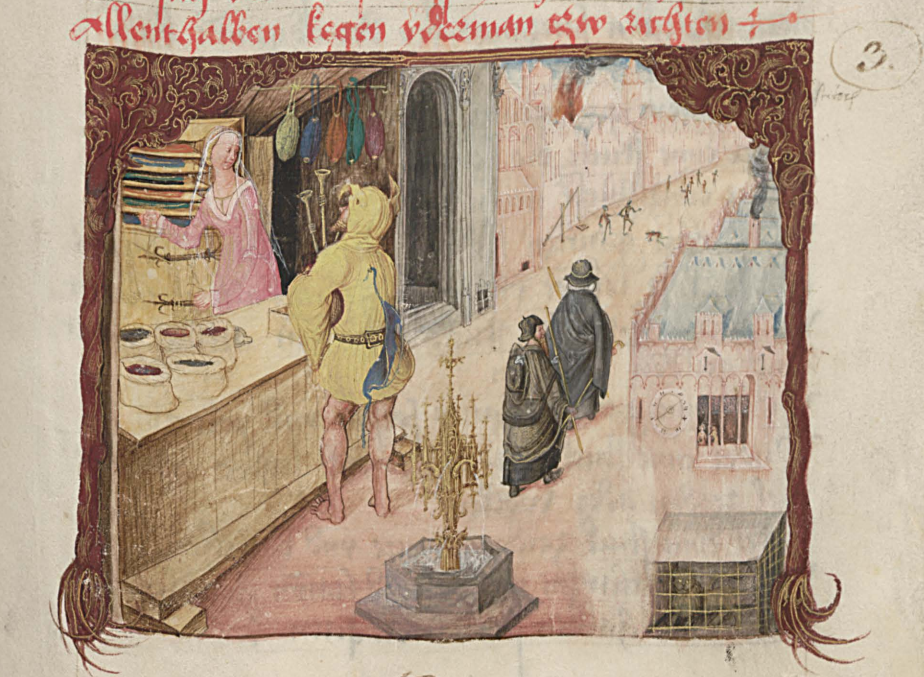 Allenthalben kegen yderman tzw richten
3.